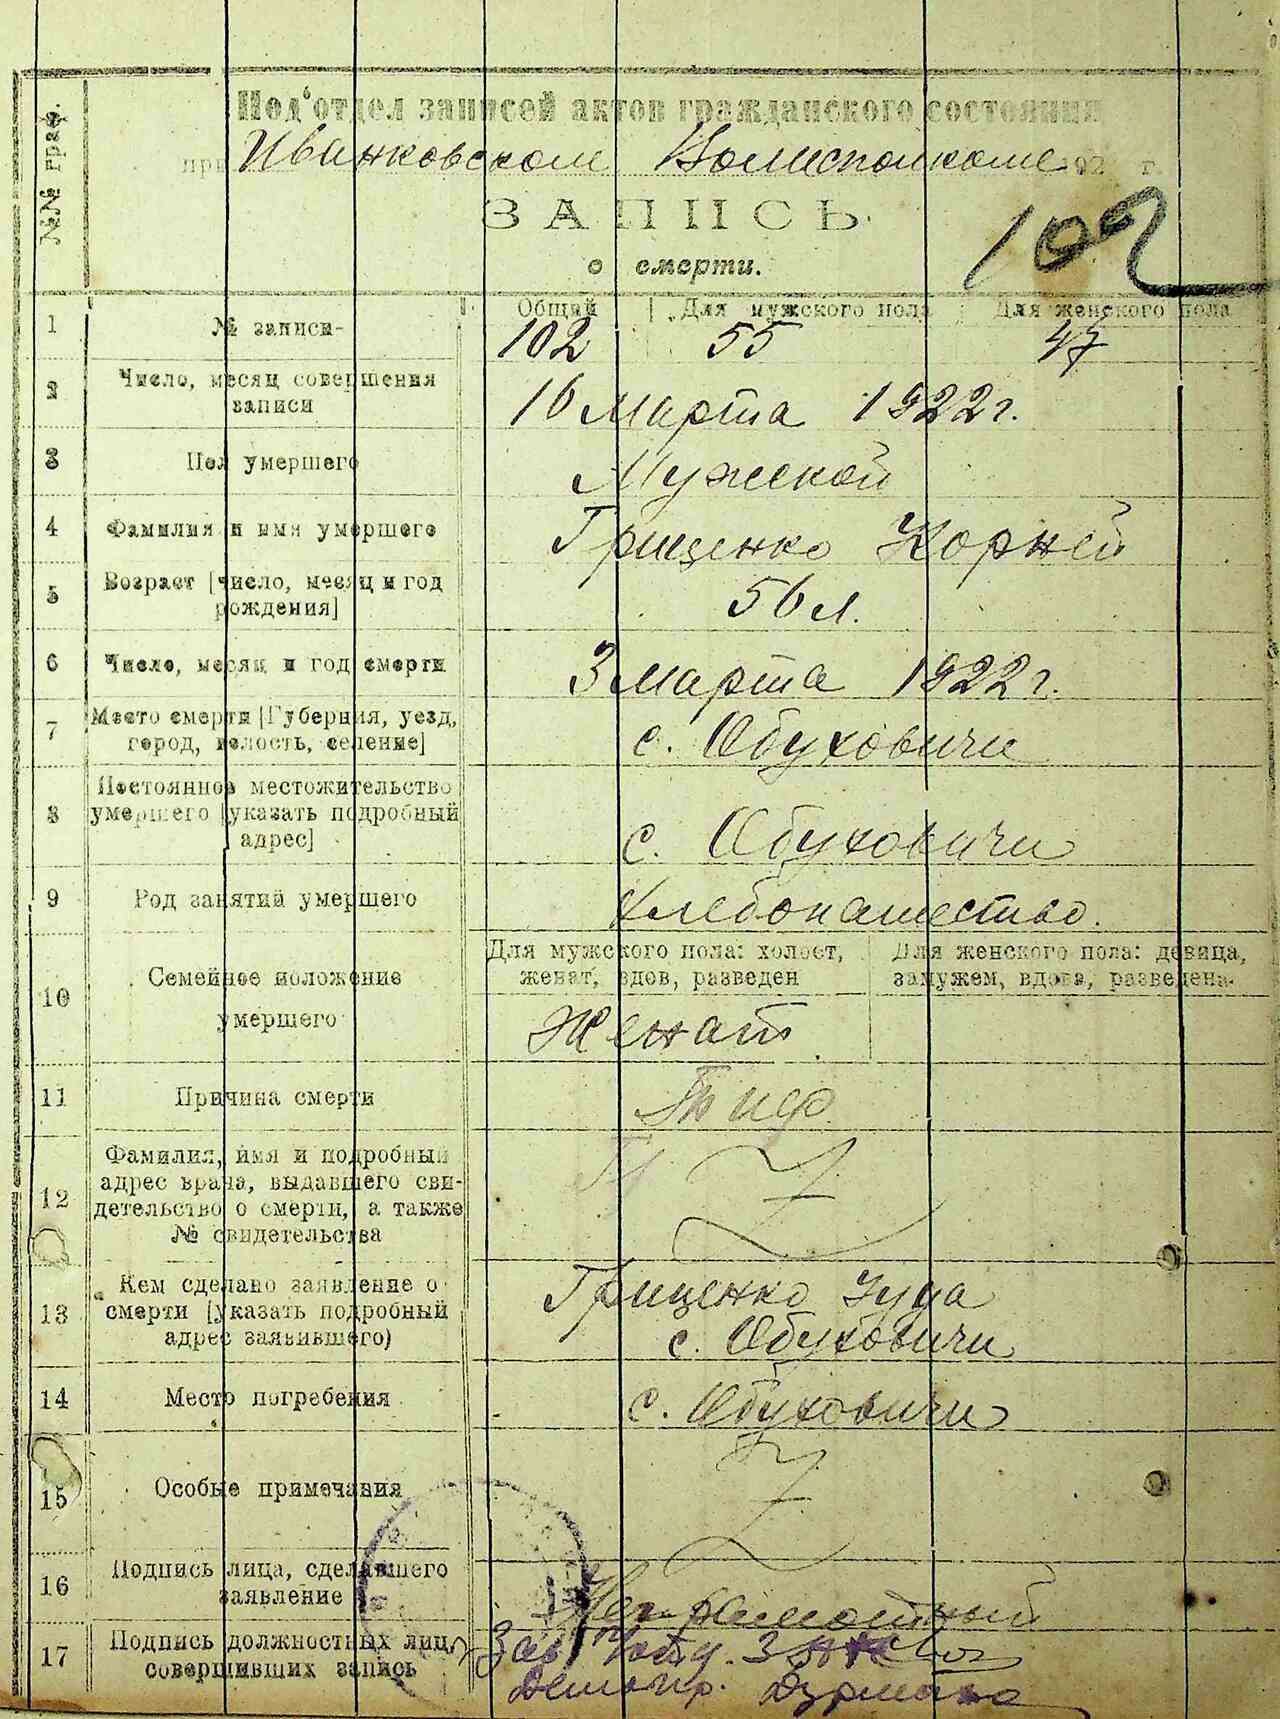 №№ граф.
Под'отдел записей актов гражданского состояния
при Иванковском Волисполкоме 192 г.
ЗАПИСЬ
о смерти.
102
Общий Для мужского пола Для женского пола
1 № записи 102 55 47
2 Число, месяц совершения
записи
16 Марта 1922 г.
3 Пол умершего Мужской
4 Фамилия и имя умершего Гриценко Корней
5 Возраст [число, месяц и год
рождения]
56 л.
6 Число, месяц и год смерти 3 Марта 1922 г.
7 Место смерти [Губерния, уезд,
город, волость, селение]
с. Обуховичи
8 Постоянное местожительство
умершего [указать подробный
адрес]
с. Обуховичи
9 Род занятий умершего Хлебопашество.
10 Семейное положение
умершего
Для мужского пола: холост,
женат, вдов, разведен
Для женского пола: девица,
замужем, вдова, разведена
Женат
11 Причина смерти Тиф
12 Фамилия, имя и подробный
адрес врача, выдавшего сви-
детельство о смерти, а также
№ свидетельства
13 Кем сделано заявление о
смерти [указать подробный
адрес заявившего)
Гриценко Іуда
с. Обуховичи
14 Место погребения с. Обуховичи
15 Особые примечания
16 Подпись лица, сделавшего
заявление
Неграмотный
17 Подпись должностных лиц,
совершивших запись
Зав.
Делопр.